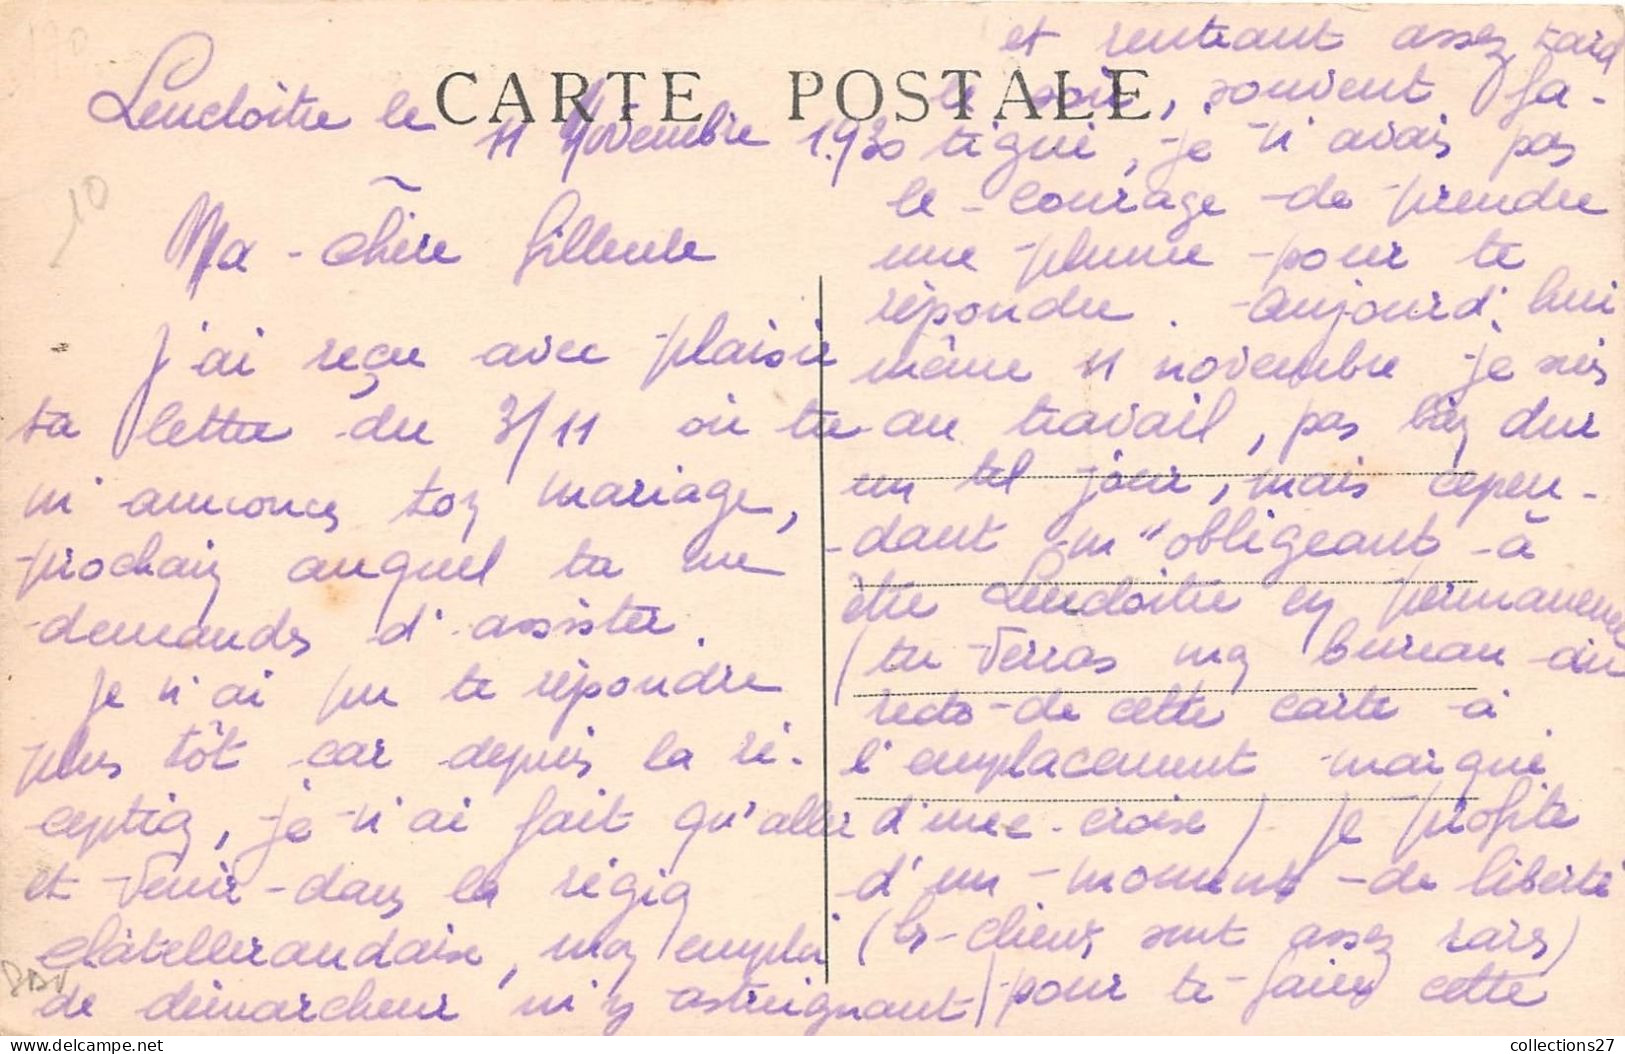 CARTE POSTALE
Lencloitre le 11 Novembre 1.930
Ma-chère filleule
J'ai reçu avec plaisir
ta lettre du 3/11 où tu
m'annonces ton mariage,
prochain auquel tu me
demandes d'assister.
Je n'ai pu te répondre
plus tôt car depuis la ré-
ception, je n'ai fait qu'aller
et venir dans la région
châtelleraudaise, mon emploi
de démarcheur m'y astreignant
et rentrant assez tard
le soir, souvent fa-
tigué, je n'avais pas
le courage de prendre
une plume pour te
répondre. aujourd'hui
même 11 novembre je suis
au travail, pas bien dur
un tel jour, mais cepen-
dant m'obligeant à
être Lencloitre en permanence
(tu verras mon bureau au
recto de cette carte à
l'emplacement marqué
d'une croix) je profite
d'un moment de liberté
(les clients sont assez rares)
pour te faire cette
10
collections27